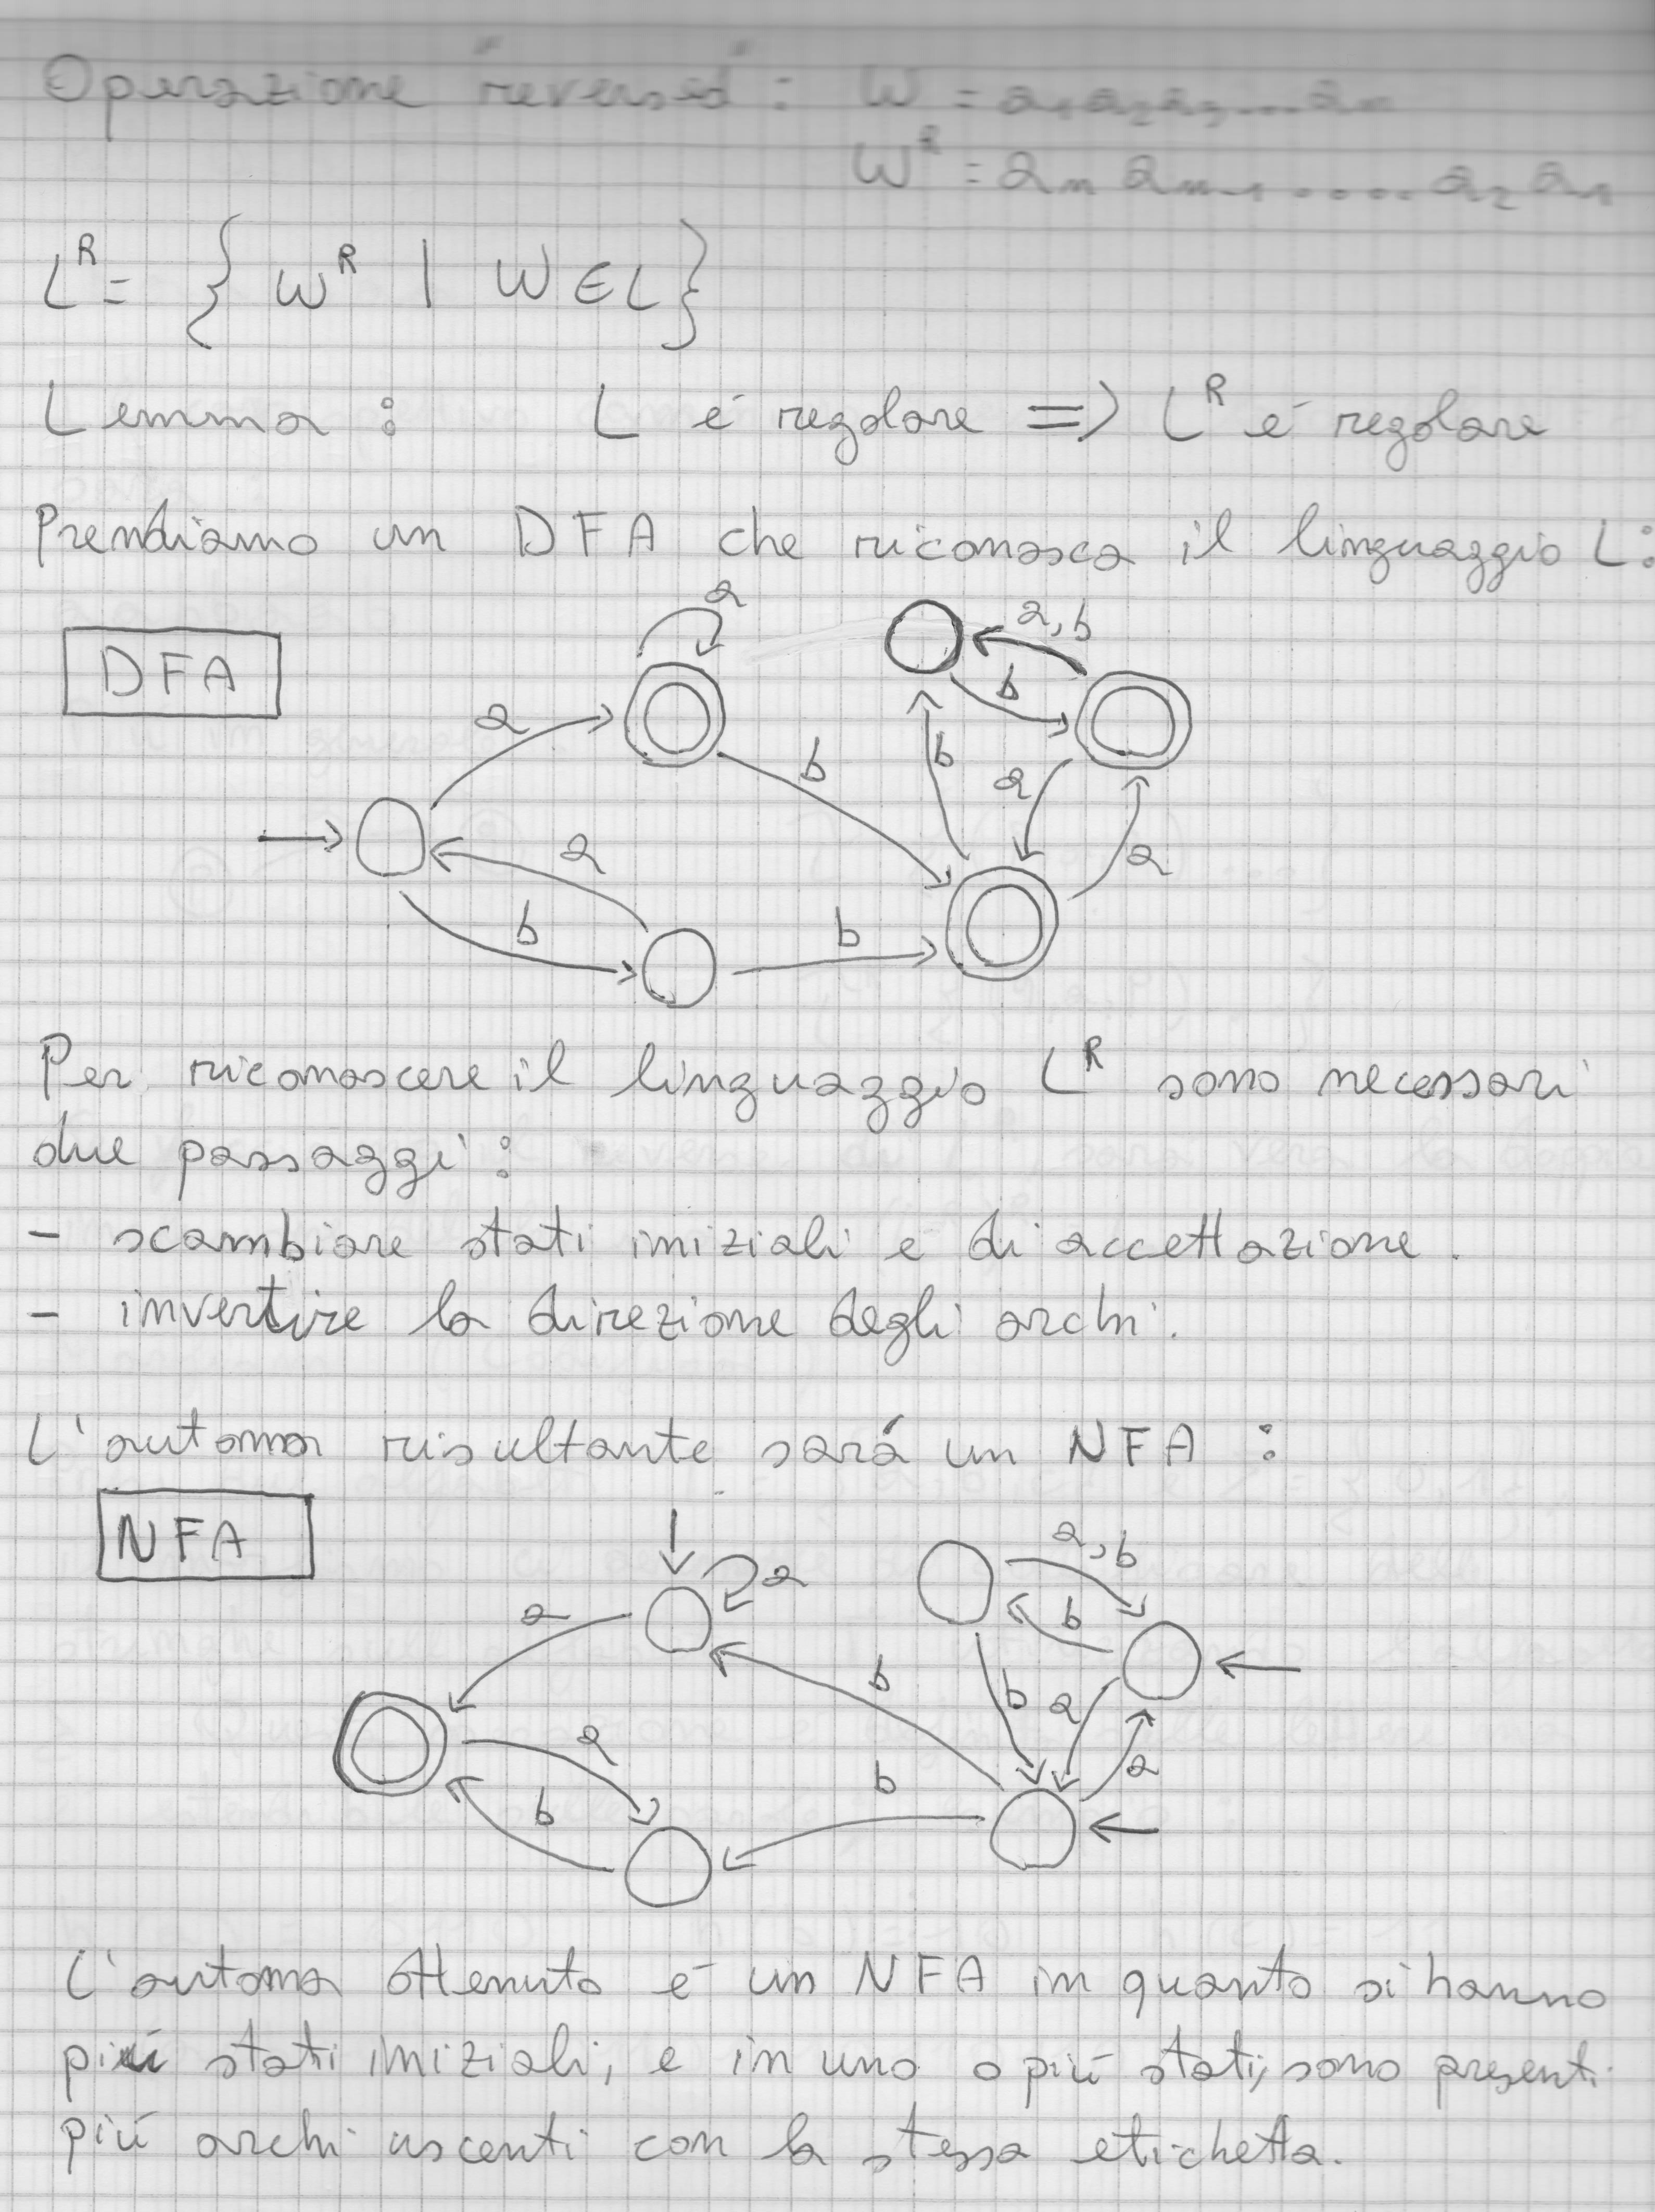 Operazione "reversed": W = a₁a₂a₃...aₙ
Wᴿ = aₙ aₙ₋₁ .... a₂ a₁
Lᴿ = { Wᴿ | W ∈ L }
Lemma : L é regolare => Lᴿ é regolare
Prendiamo un DFA che riconosca il linguaggio L:
a
a, b
DFA
b
a
b
b
a
a
a
b
b
Per riconoscere il linguaggio Lᴿ sono necessari
due passaggi :
- scambiare stati iniziali e di accettazione .
- invertire la direzione degli archi .
L'automa risultante sará un NFA :
NFA
a, b
a
a
b
b
b
a
a
a
b
b
L'automa ottenuto é un NFA in quanto si hanno
piú stati iniziali, e in uno o piú stati, sono presenti
piú archi uscenti con la stessa etichetta.